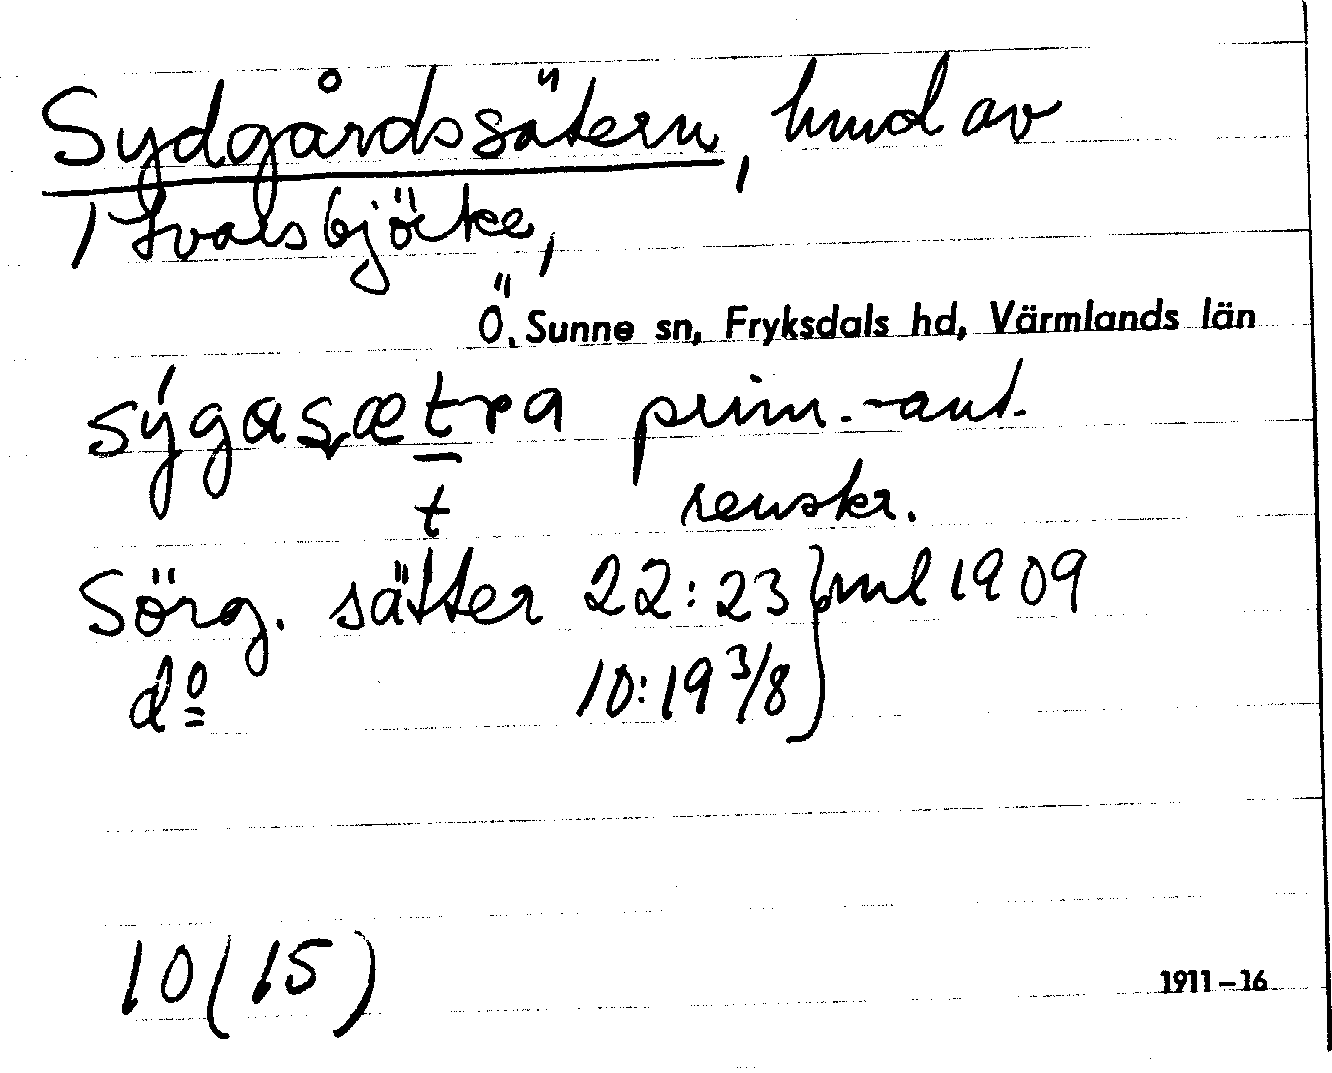 Sydgårdssätern, hmd av
1 Ivarsbjörke,
Ö. Sunne sn, Fryksdals hd, Värmlands län
sýgasætra prim.-ant.
t renskr.
Sörg. sätter 22:23 } ml 1909
do 10:19 3/8
10 (15)
1911-16